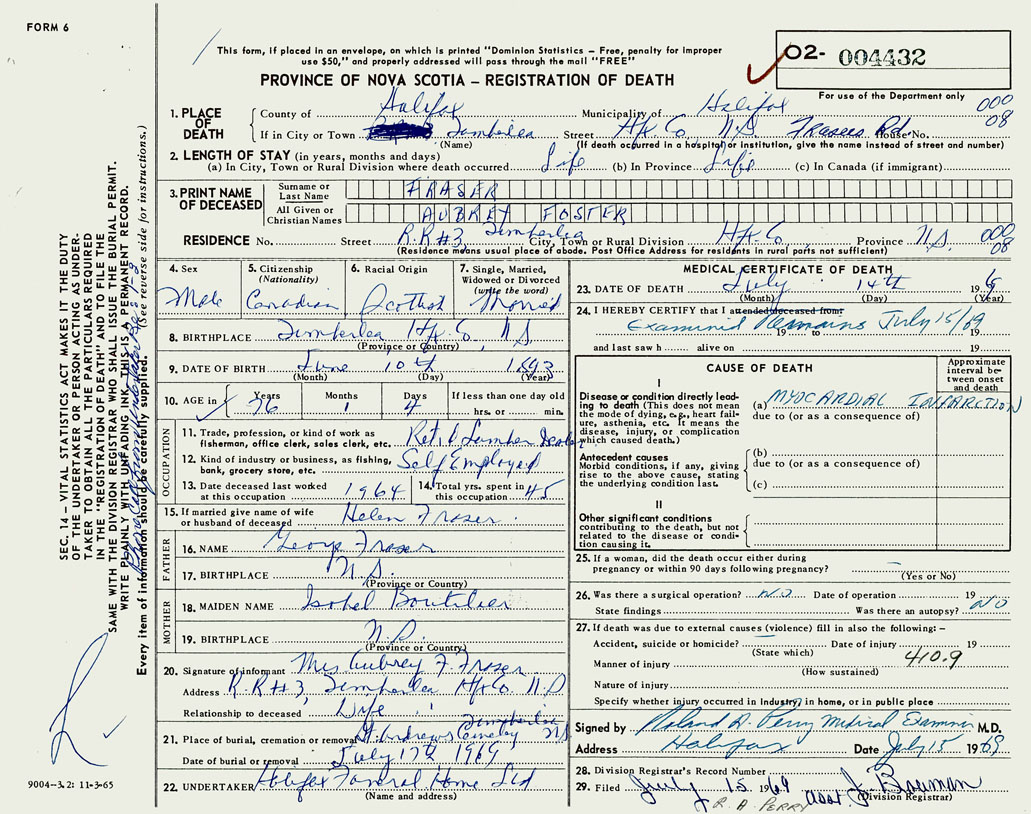 FORM 6
This form, if placed in an envelope, on which is printed "Dominion Statistics – Free, penalty for improper
use $50," and properly addressed will pass through the mail "FREE"
PROVINCE OF NOVA SCOTIA – REGISTRATION OF DEATH
02- 004432
For use of the Department only
1. PLACE OF DEATH
County of Halifax Municipality of Halifax 000
If in City or Town Timberlea Street Hfx Co N.S. Frasers Rd. House No. 08
(Name) (If death occurred in a hospital or institution, give the name instead of street and number)
2. LENGTH OF STAY (in years, months and days)
(a) In City, Town or Rural Division where death occurred Life (b) In Province Life (c) In Canada (if immigrant)
3. PRINT NAME OF DECEASED
Surname or Last Name FRASER
All Given or Christian Names AUBREY FOSTER
RESIDENCE No. Street R.R#3, Timberlea City, Town or Rural Division Hfx Co Province N.S. 000
(Residence means usual place of abode. Post Office Address for residents in rural parts not sufficient) 08
4. Sex Male
5. Citizenship (Nationality) Canadian
6. Racial Origin Scottish
7. Single, Married, Widowed or Divorced (write the word) Married
8. BIRTHPLACE Timberlea Hfx Co. N.S.
(Province or Country)
9. DATE OF BIRTH June 10th 1893
(Month) (Day) (Year)
10. AGE in Years 76 Months 1 Days 4 If less than one day old
hrs. or min.
OCCUPATION
11. Trade, profession, or kind of work as Ret'd Lumber Dealer
fisherman, office clerk, sales clerk, etc.
12. Kind of industry or business, as fishing, Self Employed
bank, grocery store, etc.
13. Date deceased last worked at this occupation 1964
14. Total yrs. spent in this occupation 45
15. If married give name of wife or husband of deceased Helen Fraser
FATHER
16. NAME George Fraser
17. BIRTHPLACE N.S.
(Province or Country)
MOTHER
18. MAIDEN NAME Isobel Boutilier
19. BIRTHPLACE N.S.
(Province or Country)
20. Signature of informant Mrs Aubrey F. Fraser
Address R.R#3, Timberlea Hfx Co. N.S
Relationship to deceased Wife
21. Place of burial, cremation or removal St. Andrews Cemetery Timberlea NS
Date of burial or removal July 17th 1969
22. UNDERTAKER Halifax Funeral Home Ltd
(Name and address)
MEDICAL CERTIFICATE OF DEATH
23. DATE OF DEATH July 14th
(Month) (Day) (Year)
24. I HEREBY CERTIFY that I attended deceased from:
Examined Remains July 15/69
19 to 19
and last saw h alive on 19
CAUSE OF DEATH
Approximate interval between onset and death
I
Disease or condition directly leading to death (This does not mean the mode of dying, e.g., heart failure, asthenia, etc. It means the disease, injury, or complication which caused death.)
(a) MYOCARDIAL INFARCTION
due to (or as a consequence of)
Antecedent causes
Morbid conditions, if any, giving rise to the above cause, stating the underlying condition last.
(b)
due to (or as a consequence of)
(c)
II
Other significant conditions
contributing to the death, but not related to the disease or condition causing it.
25. If a woman, did the death occur either during
pregnancy or within 90 days following pregnancy? –
(Yes or No)
26. Was there a surgical operation? NO Date of operation 19
State findings Was there an autopsy? NO
27. If death was due to external causes (violence) fill in also the following: –
Accident, suicide or homicide? Date of injury 19
(State which) 410.9
Manner of injury
(How sustained)
Nature of injury
Specify whether injury occurred in industry, in home, or in public place
Signed by Roland A. Perry Medical Examiner M.D.
Address Halifax Date July 15 1969
28. Division Registrar's Record Number
29. Filed July 15 1969 asst. J. Bauman
(Division Registrar)
R. A. PERRY
SEC. 14 – VITAL STATISTICS ACT MAKES IT THE DUTY
OF THE UNDERTAKER OR PERSON ACTING AS UNDER-
TAKER TO OBTAIN ALL THE PARTICULARS REQUIRED
IN THE "REGISTRATION OF DEATH" AND TO FILE THE
SAME WITH THE DIVISION REGISTRAR WHO SHALL ISSUE THE BURIAL PERMIT.
WRITE PLAINLY WITH UNFADING INK. THIS IS A PERMANENT RECORD.
Every item of information should be carefully supplied. (See reverse side for instructions.)
9004–3.2: 11-3-65